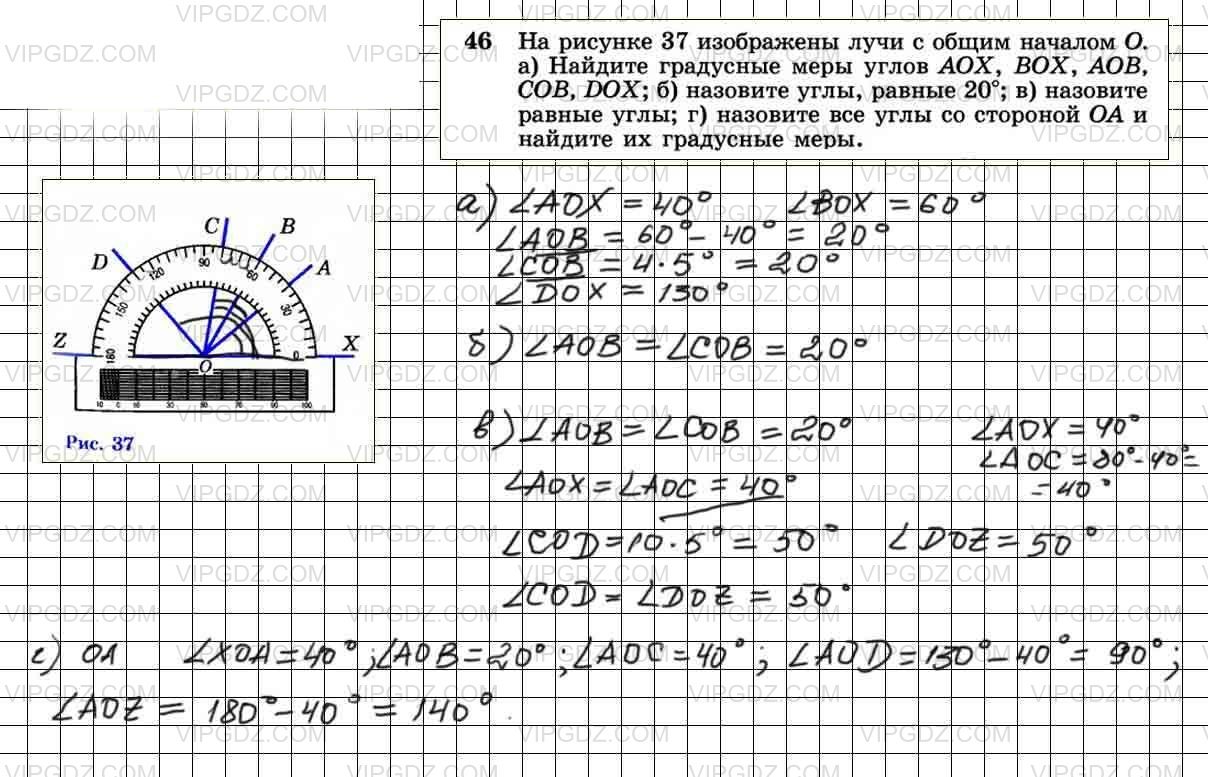 46 На рисунке 37 изображены лучи с общим началом O.
а) Найдите градусные меры углов AOX, BOX, AOB,
COB, DOX; б) назовите углы, равные 20°; в) назовите
равные углы; г) назовите все углы со стороной OA и
найдите их градусные меры.
Z D C B A X
O
180 150 120 90 60 30 0
10 0 10 30 50 70 90 100
Рис. 37
а) ∠AOX = 40° ∠BOX = 60°
∠AOB = 60° - 40° = 20°
∠COB = 4·5° = 20°
∠DOX = 130°
б) ∠AOB = ∠COB = 20°
в) ∠AOB = ∠COB = 20° ∠AOX = 40°
∠AOC = 80° - 40° =
∠AOX = ∠AOC = 40° = 40°
∠COD = 10·5° = 50° ∠DOZ = 50°
∠COD = ∠DOZ = 50°
г) OA ∠XOA = 40°; ∠AOB = 20°; ∠AOC = 40°; ∠AOD = 130° - 40° = 90°;
∠AOZ = 180° - 40° = 140°.
VIPGDZ.COM